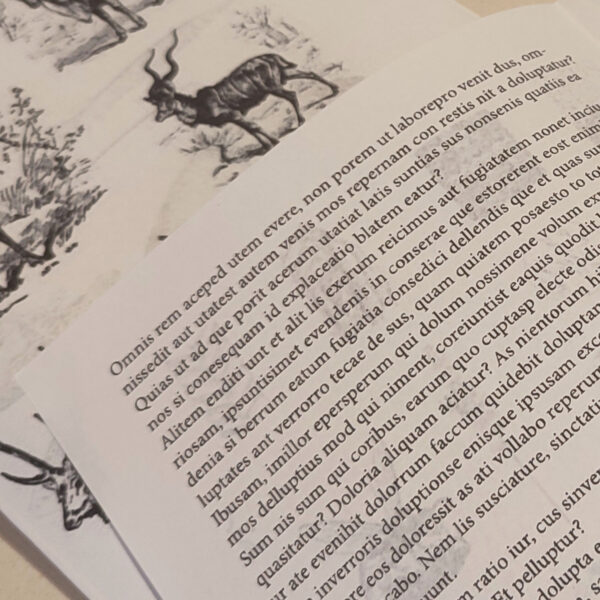 Omnis rem aceped utem evere, non porem ut laborepro venit dus, om-
nissedit aut utatest autem venis mos repernam con restis nit a doluptatur?
Quias ut ad que porit acerum utatiat latis suntias sus nonsenis quatiis ea
nos si conesequam id explaceatio blatem eatur?
Alitem enditi unt et alit lis exerum reicimus aut fugiatatem nonet inciu
riosam, ipsuntisimet evendenis in conserae que estorerent eost enim
denia si berrum eatum fugiatia consedici dellendis que et quas sun
luptates ant verrorro tecae de sus, quam quiatem posaesto to tot
Ibusam, imillor epersperum qui dolum nossimene volum exp
mos delluptius mod qui niment, coreiuntist eaquis quodit l
Sum nis sum qui coribus, earum quo cuptasp electe odis
quasitatur? Doloria aliquam aciatur? As nientorum hil
ur ate evenihit dolorrum faccum quidebit doluptan
inverroris doluptionse enisque ipsusam exce
ore eos doloressit as ati vollabo reperum
cabo. Nem lis susciature, sinctati
unt.
m ratio iur, cus sinver
Et pelluptur?
dolupta e